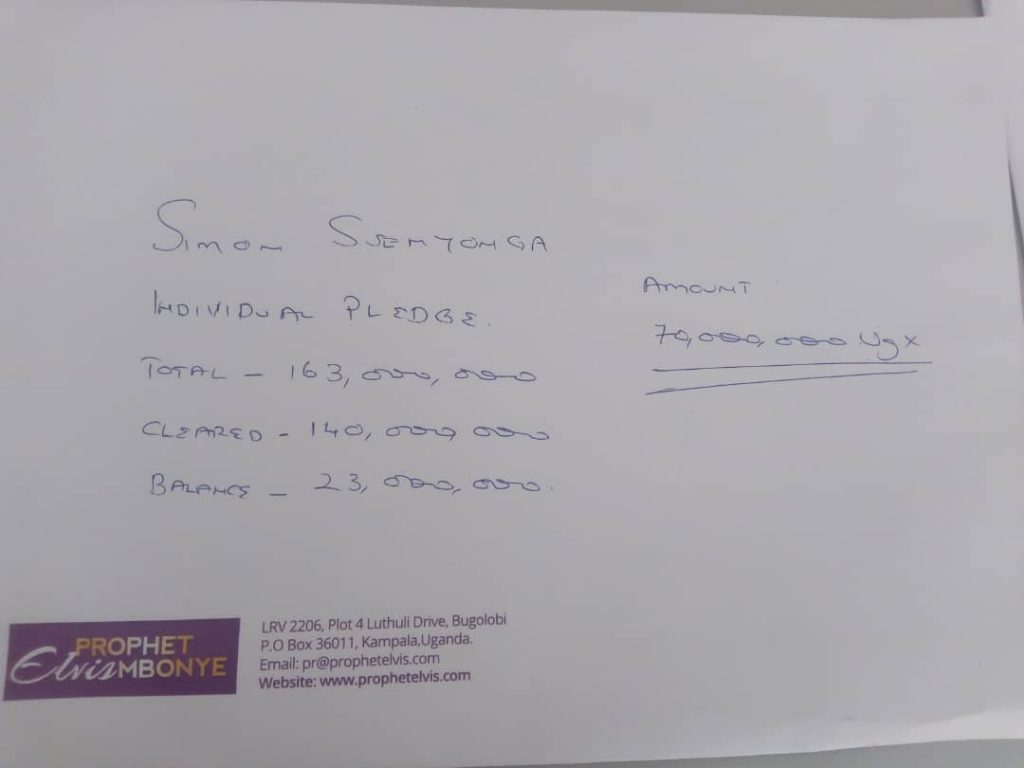 SIMON SSENYONGA
INDIVIDUAL PLEDGE.
TOTAL – 163,000,000
CLEARED – 140,000,000
BALANCE – 23,000,000.
AMOUNT
70,000,000 Ugx
PROPHET
Elvis MBONYE
LRV 2206, Plot 4 Luthuli Drive, Bugolobi
P.O Box 36011, Kampala,Uganda.
Email: pr@prophetelvis.com
Website: www.prophetelvis.com